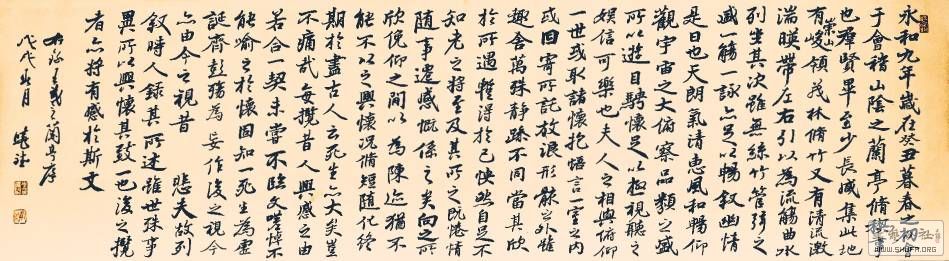 永和九年歲在癸丑暮春之初會
于會稽山陰之蘭亭脩禊事
也群賢畢至少長咸集此地
有崇山峻領茂林脩竹又有清流激
湍暎帶左右引以為流觴曲水
列坐其次雖無絲竹管弦之
盛一觴一詠亦足以暢敘幽情
是日也天朗氣清惠風和暢仰
觀宇宙之大俯察品類之盛
所以遊目騁懷足以極視聽之
娛信可樂也夫人之相與俯仰
一世或取諸懷抱悟言一室之內
或因寄所託放浪形骸之外雖
趣舍萬殊靜躁不同當其欣
於所遇暫得於己快然自足不
知老之將至及其所之既惓情
隨事遷感慨係之矣向之所
欣俛仰之間以為陳迹猶不
能不以之興懷況脩短隨化終
期於盡古人云死生亦大矣豈
不痛哉每攬昔人興感之由
若合一契未嘗不臨文嗟悼不
能喻之於懷固知一死生為虛
誕齊彭殤為妄作後之視今
亦由今之視昔 悲夫故列
敘時人錄其所述雖世殊事
異所以興懷其致一也後之攬
者亦將有感於斯文
右 王羲之蘭亭序
戊戌 月
WWW.SHUFA.ORG